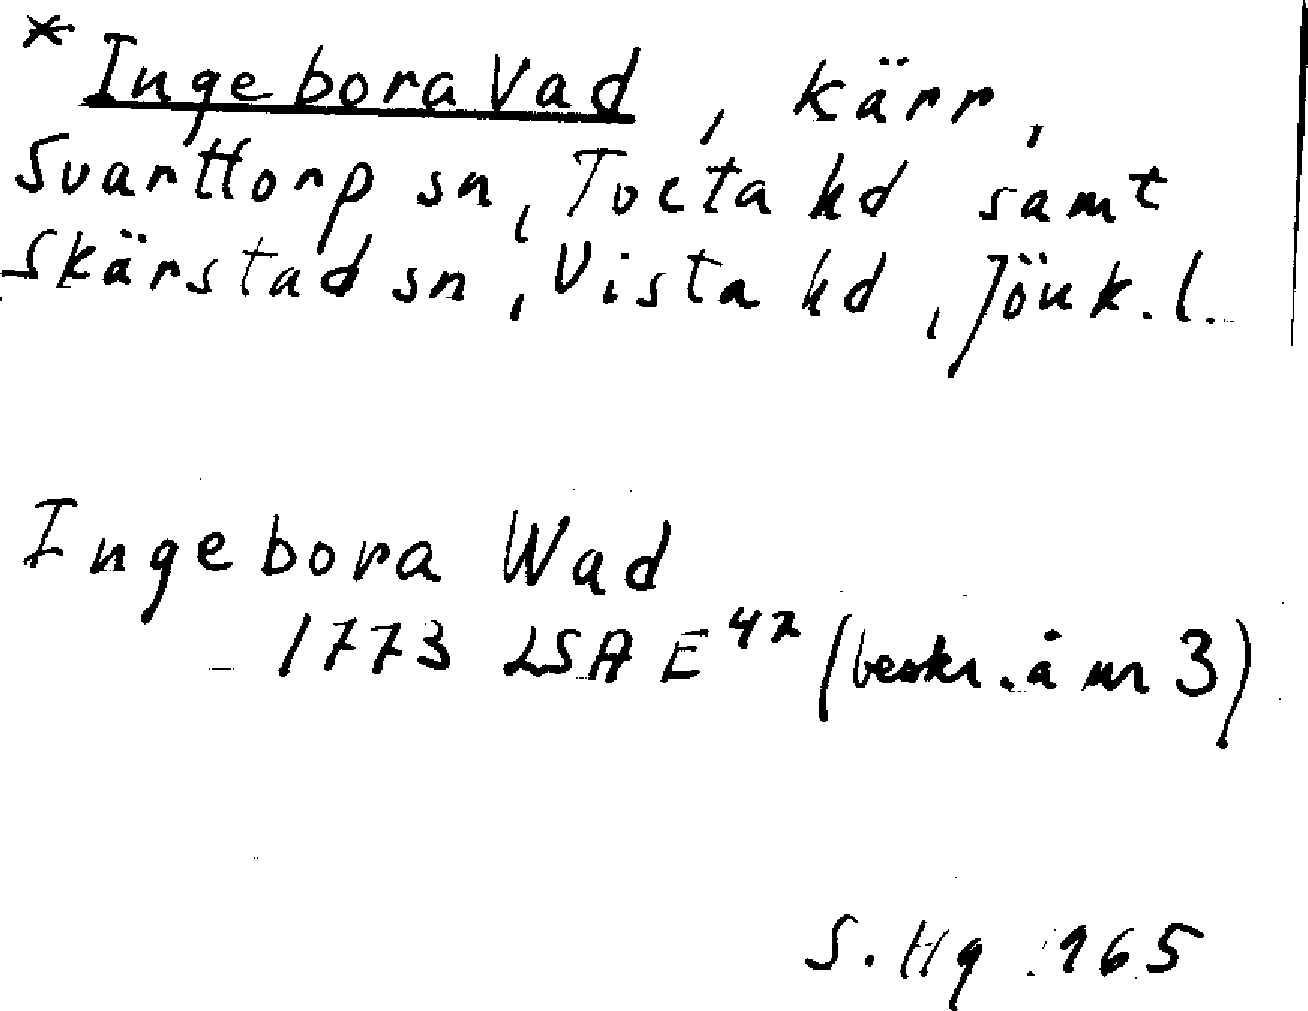 * Ingebora Vad, kärr,
Svarttorp sn, Tveta hd samt
Skärstad sn, Vista hd, Jönk. l.
Ingebora Wad
1773 LSA E 42 (beskr. å nr 3)
S. Hg 165